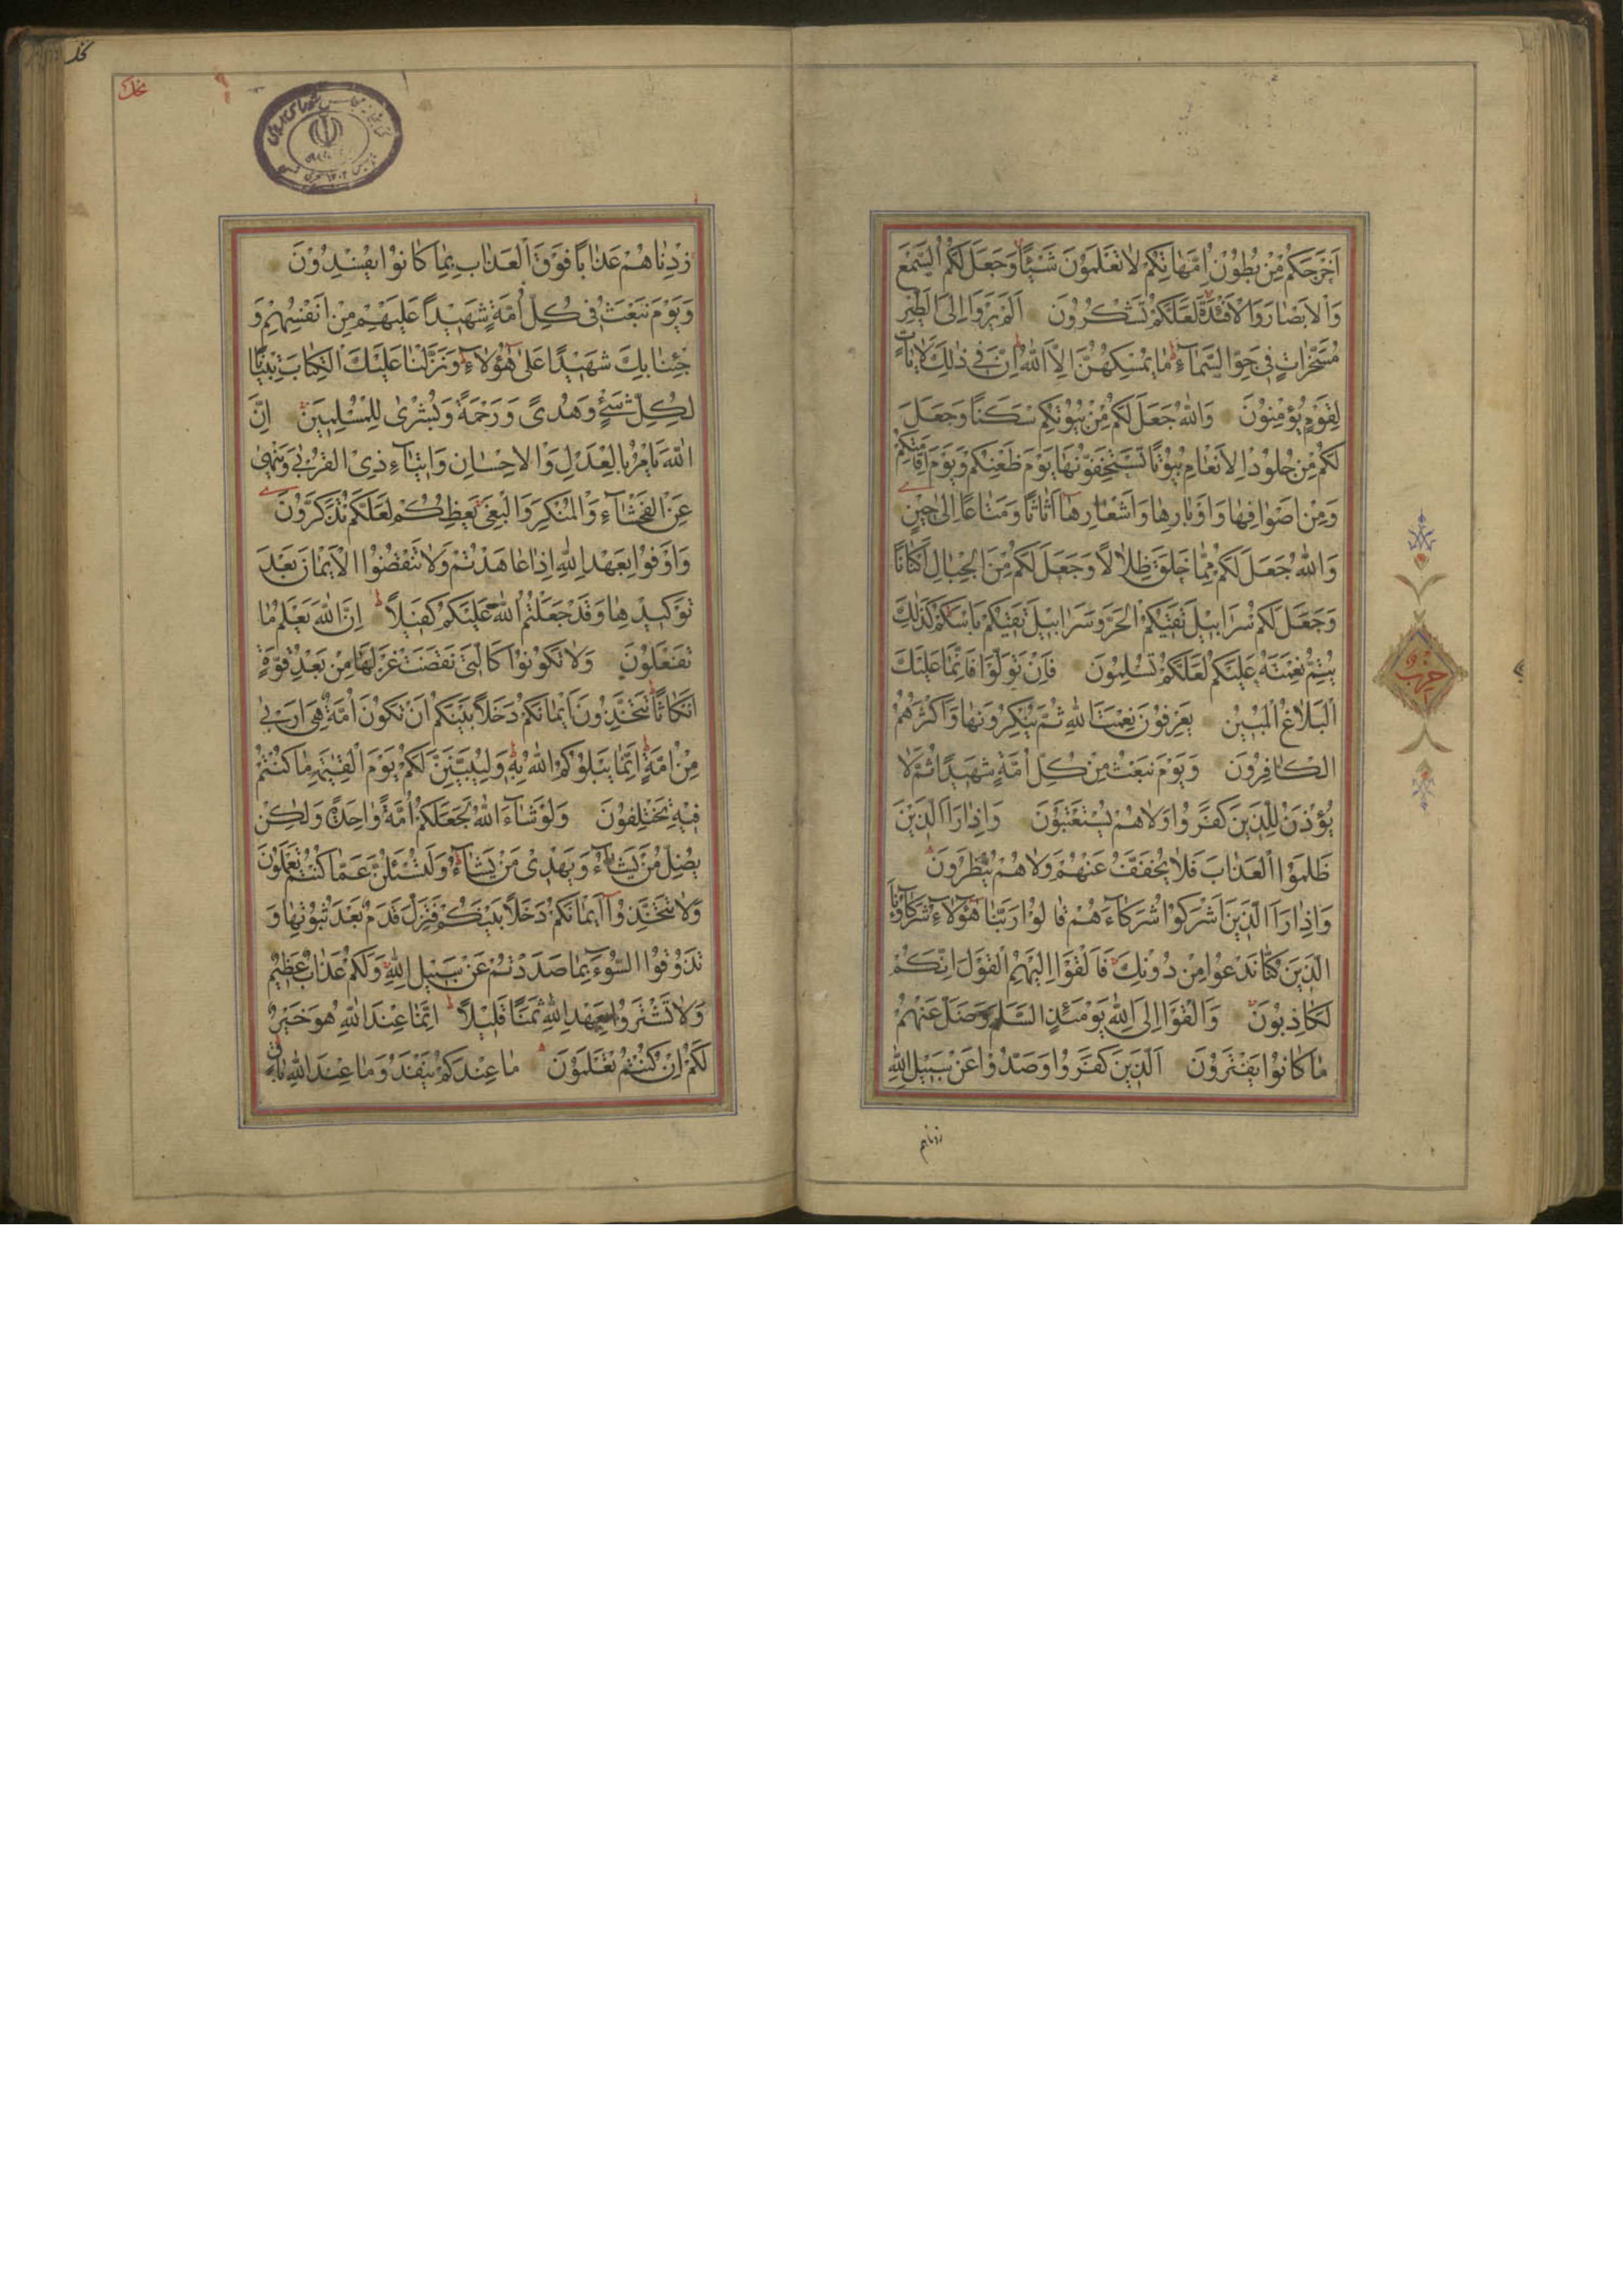 اَخْرَجَكُمْ مِنْ بُطُوْنِ اُمَّهَاتِكُمْ لَا تَعْلَمُوْنَ شَيْئًا وَجَعَلَ لَكُمُ السَّمْعَ
وَالْاَبْصَارَ وَالْاَفْئِدَةَ لَعَلَّكُمْ تَشْكُرُوْنَ اَلَمْ يَرَوْا اِلَى الطَّيْرِ
مُسَخَّرَاتٍ فِىْ جَوِّ السَّمَاۤءِ مَا يُمْسِكُهُنَّ اِلَّا اللّٰهُ اِنَّ فِىْ ذٰلِكَ لَاٰيَاتٍ
لِقَوْمٍ يُؤْمِنُوْنَ وَاللّٰهُ جَعَلَ لَكُمْ مِنْ بُيُوْتِكُمْ سَكَنًا وَجَعَلَ
لَكُمْ مِنْ جُلُوْدِ الْاَنْعَامِ بُيُوْتًا تَسْتَخِفُّوْنَهَا يَوْمَ ظَعْنِكُمْ وَيَوْمَ اِقَامَتِكُمْ
وَمِنْ اَصْوَافِهَا وَاَوْبَارِهَا وَاَشْعَارِهَا اَثَاثًا وَمَتَاعًا اِلٰى حِيْنٍ
وَاللّٰهُ جَعَلَ لَكُمْ مِمَّا خَلَقَ ظِلَالًا وَجَعَلَ لَكُمْ مِنَ الْجِبَالِ اَكْنَانًا
وَجَعَلَ لَكُمْ سَرَابِيْلَ تَقِيْكُمُ الْحَرَّ وَسَرَابِيْلَ تَقِيْكُمْ بَاْسَكُمْ كَذٰلِكَ
يُتِمُّ نِعْمَتَهُ عَلَيْكُمْ لَعَلَّكُمْ تُسْلِمُوْنَ فَاِنْ تَوَلَّوْا فَاِنَّمَا عَلَيْكَ
الْبَلَاغُ الْمُبِيْنُ يَعْرِفُوْنَ نِعْمَتَ اللّٰهِ ثُمَّ يُنْكِرُوْنَهَا وَاَكْثَرُهُمُ
الْكَافِرُوْنَ وَيَوْمَ نَبْعَثُ مِنْ كُلِّ اُمَّةٍ شَهِيْدًا ثُمَّ لَا
يُؤْذَنُ لِلَّذِيْنَ كَفَرُوْا وَلَا هُمْ يُسْتَعْتَبُوْنَ وَاِذَا رَاَ الَّذِيْنَ
ظَلَمُوا الْعَذَابَ فَلَا يُخَفَّفُ عَنْهُمْ وَلَا هُمْ يُنْظَرُوْنَ
وَاِذَا رَاَ الَّذِيْنَ اَشْرَكُوْا شُرَكَاۤءَهُمْ قَالُوْا رَبَّنَا هٰۤؤُلَاۤءِ شُرَكَاۤؤُنَا
الَّذِيْنَ كُنَّا نَدْعُوْا مِنْ دُوْنِكَ فَاَلْقَوْا اِلَيْهِمُ الْقَوْلَ اِنَّكُمْ
لَكَاذِبُوْنَ وَاَلْقَوْا اِلَى اللّٰهِ يَوْمَئِذٍ السَّلَمَ وَضَلَّ عَنْهُمْ
مَا كَانُوْا يَفْتَرُوْنَ اَلَّذِيْنَ كَفَرُوْا وَصَدُّوْا عَنْ سَبِيْلِ اللّٰهِ
زدناهم
حزب
زِدْنَاهُمْ عَذَابًا فَوْقَ الْعَذَابِ بِمَا كَانُوْا يُفْسِدُوْنَ
وَيَوْمَ نَبْعَثُ فِىْ كُلِّ اُمَّةٍ شَهِيْدًا عَلَيْهِمْ مِنْ اَنْفُسِهِمْ وَ
جِئْنَا بِكَ شَهِيْدًا عَلٰى هٰۤؤُلَاۤءِ وَنَزَّلْنَا عَلَيْكَ الْكِتَابَ تِبْيَانًا
لِكُلِّ شَىْءٍ وَهُدًى وَرَحْمَةً وَبُشْرٰى لِلْمُسْلِمِيْنَ اِنَّ
اللّٰهَ يَاْمُرُ بِالْعَدْلِ وَالْاِحْسَانِ وَاِيْتَاۤءِ ذِى الْقُرْبٰى وَيَنْهٰى
عَنِ الْفَحْشَاۤءِ وَالْمُنْكَرِ وَالْبَغْىِ يَعِظُكُمْ لَعَلَّكُمْ تَذَكَّرُوْنَ
وَاَوْفُوْا بِعَهْدِ اللّٰهِ اِذَا عَاهَدْتُمْ وَلَا تَنْقُضُوا الْاَيْمَانَ بَعْدَ
تَوْكِيْدِهَا وَقَدْ جَعَلْتُمُ اللّٰهَ عَلَيْكُمْ كَفِيْلًا اِنَّ اللّٰهَ يَعْلَمُ مَا
تَفْعَلُوْنَ وَلَا تَكُوْنُوْا كَالَّتِىْ نَقَضَتْ غَزْلَهَا مِنْ بَعْدِ قُوَّةٍ
اَنْكَاثًا تَتَّخِذُوْنَ اَيْمَانَكُمْ دَخَلًا بَيْنَكُمْ اَنْ تَكُوْنَ اُمَّةٌ هِىَ اَرْبٰى
مِنْ اُمَّةٍ اِنَّمَا يَبْلُوْكُمُ اللّٰهُ بِهِ وَلَيُبَيِّنَنَّ لَكُمْ يَوْمَ الْقِيٰمَةِ مَا كُنْتُمْ
فِيْهِ تَخْتَلِفُوْنَ وَلَوْ شَاۤءَ اللّٰهُ لَجَعَلَكُمْ اُمَّةً وَاحِدَةً وَلٰكِنْ
يُضِلُّ مَنْ يَشَاۤءُ وَيَهْدِىْ مَنْ يَشَاۤءُ وَلَتُسْئَلُنَّ عَمَّا كُنْتُمْ تَعْمَلُوْنَ
وَلَا تَتَّخِذُوْا اَيْمَانَكُمْ دَخَلًا بَيْنَكُمْ فَتَزِلَّ قَدَمٌ بَعْدَ ثُبُوْتِهَا وَ
تَذُوْقُوا السُّوْۤءَ بِمَا صَدَدْتُمْ عَنْ سَبِيْلِ اللّٰهِ وَلَكُمْ عَذَابٌ عَظِيْمٌ
وَلَا تَشْتَرُوْا بِعَهْدِ اللّٰهِ ثَمَنًا قَلِيْلًا اِنَّمَا عِنْدَ اللّٰهِ هُوَ خَيْرٌ
لَكُمْ اِنْ كُنْتُمْ تَعْلَمُوْنَ مَا عِنْدَكُمْ يَنْفَدُ وَمَا عِنْدَ اللّٰهِ بَاقٍ